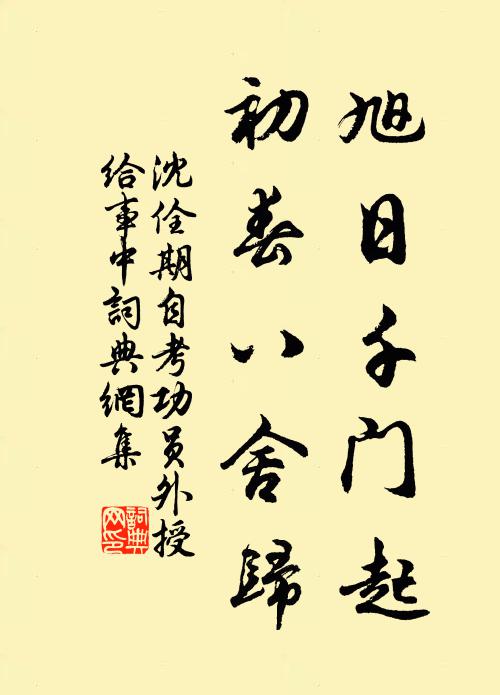 旭日千门起
初春八舍歸
沈佺期自考功员外授
给事中詞典網集
詞典
网印